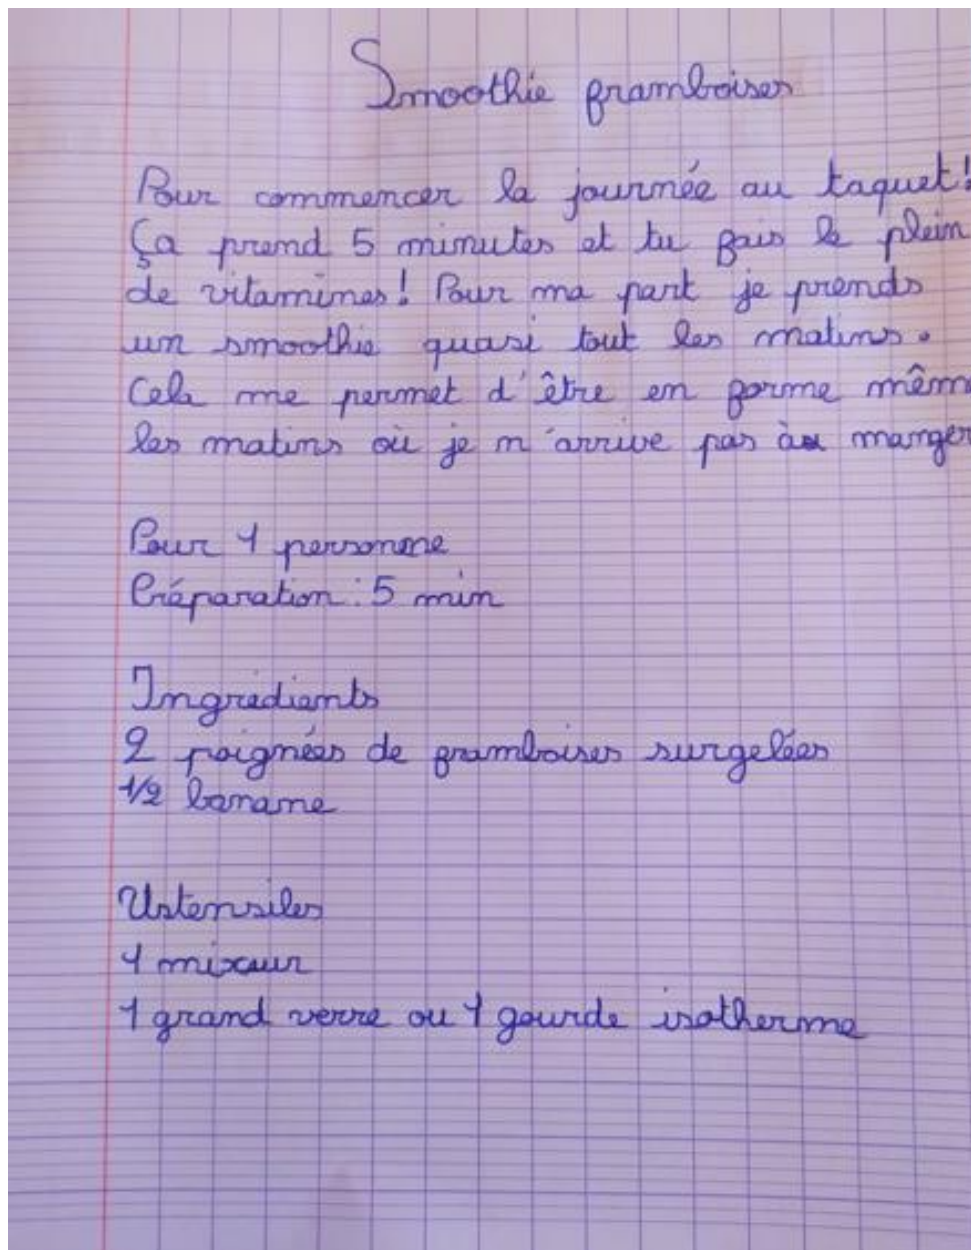 Smoothie framboises
Pour commencer la journée au taquet!
Ça prend 5 minutes et tu fais le plein
de vitamines! Pour ma part je prends
un smoothie quasi tout les matins.
Cela me permet d'être en forme mêm
les matins où je n'arrive pas à manger
Pour 1 personne
Préparation : 5 min
Ingrédients
2 poignées de framboises surgelées
1/2 banane
Ustensiles
1 mixeur
1 grand verre ou 1 gourde isotherme